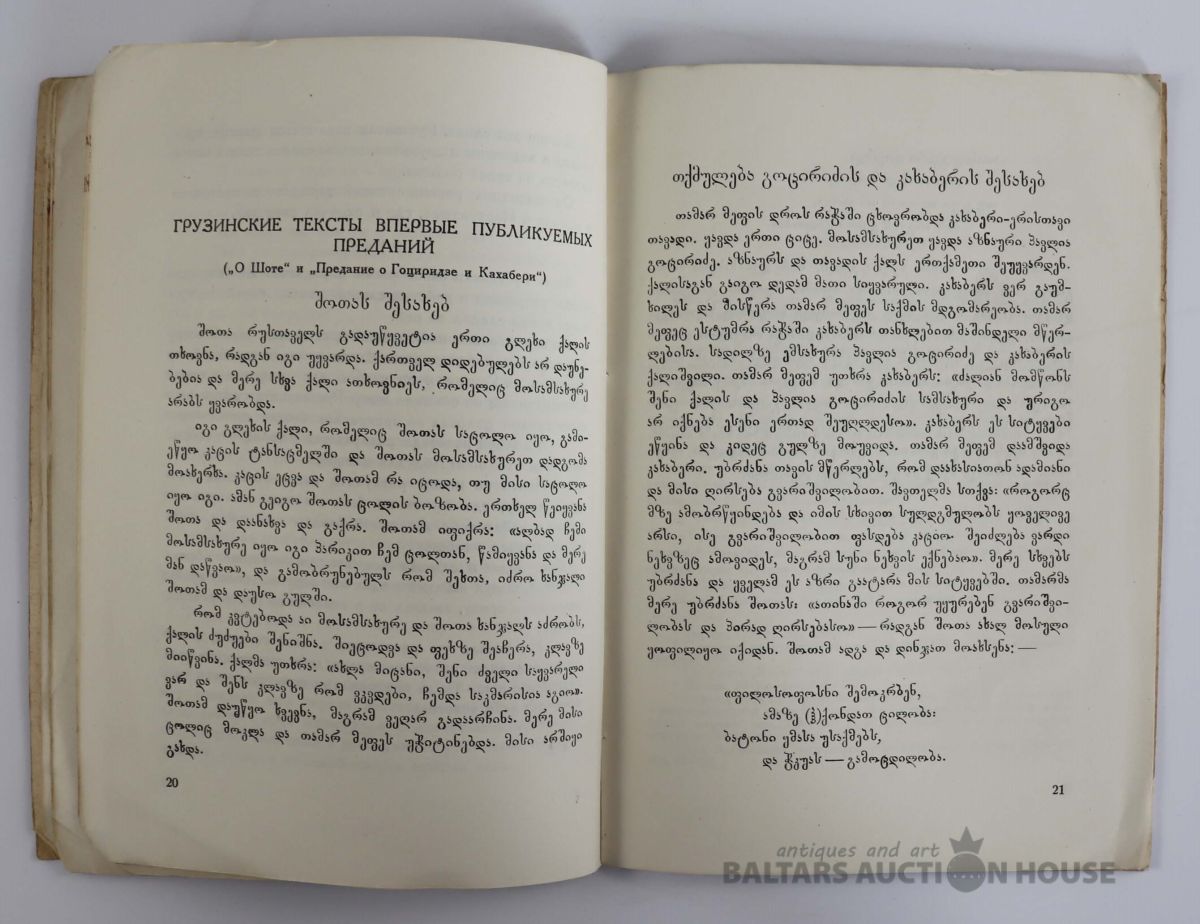 ГРУЗИНСКИЕ ТЕКСТЫ ВПЕРВЫЕ ПУБЛИКУЕМЫХ
ПРЕДАНИЙ
(„О Шоте“ и „Предание о Гоциридзе и Кахабери“)
შოთას შესახებ
შოთა რუსთაველს გადაუწყვეტია ერთი გლეხი ქალის
თხოვნა, რადგან იგი უყვარდა. ქართველ დიდებულებს არ დაუნე-
ბებია და მერე სხვა ქალი ათხოვნიეს, რომელიც მოსამსახურე
არაბს უვარობდა.
იგი გლეხის ქალი, რომელიც შოთას საცოლო იყო, გამი-
ეწყო კაცის ტანსაცმელში და შოთას მოსამსახურეთ დადგომა
მოახერხა. კაცის ეცვა და შოთამ რა იცოდა, თუ მისი საცოლო
იყო იგი. ამან გეიგო შოთას ცოლის ბოზობა. ერთხელ წეიყვანა
შოთა და დაანახვა და გაქრა. შოთამ იფიქრა: «ალბად ჩემი
მოსამსახურე იყო იგი პარიკით ჩემ ცოლთან, წამიყვანა და მერე
მან დაწვაო», და გამობრუნებულს რომ შეხთა, იძრო ხანჯალი
შოთამ და დაუსო გულში.
რომ კვტებოდა აი მოსამსახურე და შოთა ხანჯალს აძრობს,
ქალის ძუძუები შენიშნა. შიეცოდვა და ფეხზე შააჩერა, კლავზე
მიიწვინა. ქალმა უთხრა: «ახლა მიცანი, შენი ძველი საყვარელი
ვარ და შენს კლავზე რომ ვკვდები, ჩემდა საკმარისია აგიო».
შოთამ დაუწყო ხვევნა, მაგრამ ველარ გადაარჩინა. მერე მისი
ცოლიც მოკლა და თამარ მეფეს უჭიტინებდა. მისი არშიყი
გახდა.
20
თქმულება გოცირიძის და კახაბერის შესახებ
თამარ მეფის დროს რაჭაში ცხოვრობდა კახაბერი-ერისთავი
თავადი. ყავდა ერთი ციცე. მოსამსახურეთ ყავდა აზნაური პავლია
გოცირიძე. აზნაურს და თავადის ქალს ერთქამეთი შეუყვარდენ.
ქალისაგან გაიგო დედამ მათი სიყვარული. კახაბერს ვერ გაუმ-
ხილეს და მისწერა თამარ მეფეს საქმის მდგომარეობა. თამარ
მეფეც ესტუმრა რაჭაში კახაბერს თანხლებით მაშინდელი მწერ-
ლებისა. სადილზე ემსახურა პავლია გოცირიძე და კახაბერის
ქალიშვილი. თამარ მეფემ უთხრა კახაბერს: «ძალიან მომწონს
შენი ქალის და პავლია გოცირიძის სამსახური და ურიგო
არ იქნება ესენი ერთად შეუღლდესო». კახაბერს ეს სიტყვები
ეწყინა და კიდეც გულზე მოუვიდა. თამარ მეფემ დაამშვიდა
კახაბერი. უბრძანა თავის მწერლებს, რომ დაახასიათონ ადამიანი
და მისი ღირსება გვარიშვილობით. შავთელმა სთქვა: «როგორც
მზე ამობრწყინდება და იმის სხივით სულდგმულობს ყოველივე
არსი, ისე გვარიშვილობით ფასდება კაციო. შეიძლება ვარდი
ნეხვზეც ამოვიდეს, მაგრამ სუნი ნეხვის ექნებაო». მერე სხვებს
უბრძანა და ყველამ ეს აზრი გაატარა მის სიტყვებში. თამარმა
მერე უბრძანა შოთას: «ათინაში როგორ უყურებენ გვარიშვი-
ლობას და პირად ღირსებასო» — რადგან შოთა ახალ მოსული
ყოფილიყო იქიდან. შოთამ ადგა და დინჯათ მოახსენა: —
«ფილოსოფოსნი შემოკრბენ,
ამაზე (ჰ)ქონდათ ცილობა:
ბატონი ყმასა უსაქმებს,
და ჭკუას — გამოცდილობა.
21
antiques and art
BALTARS AUCTION HOUSE